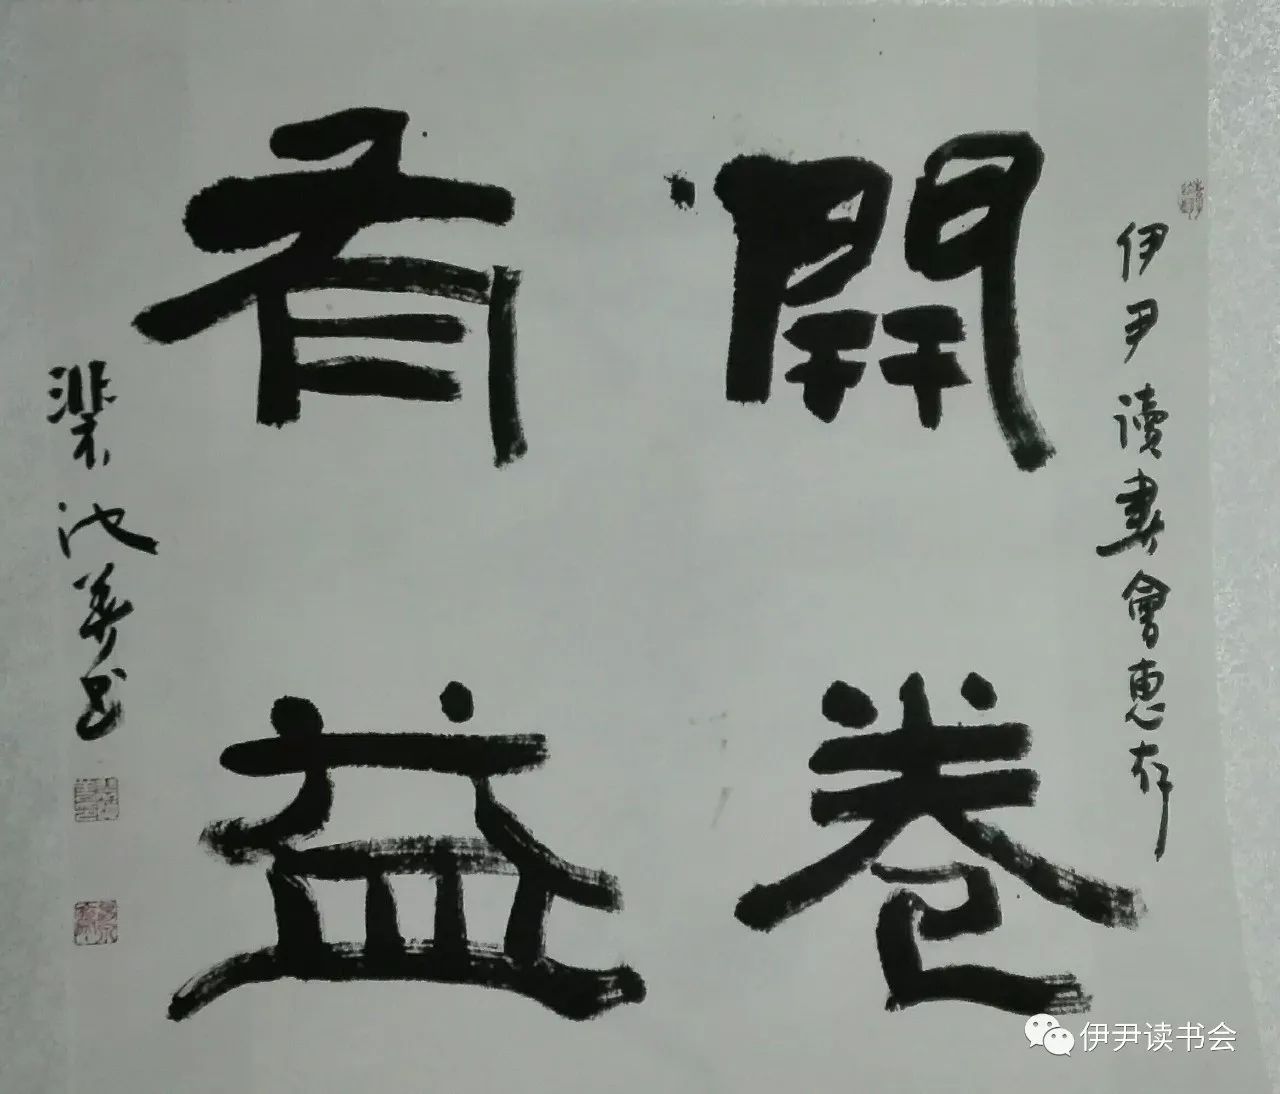 伊尹讀書會惠存
開卷
有益
池美书
伊尹读书会